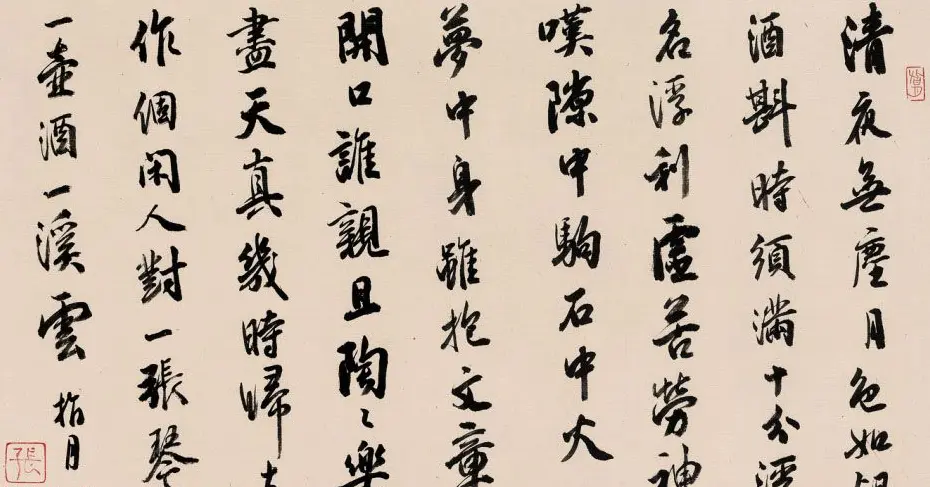 清夜無塵月色如
酒斟時須滿十分
名浮利虛苦勞神
嘆隙中駒石中火
夢中身雖抱文章
開口誰親且陶々樂
盡天真幾時歸
作個閑人對一張琴
一壺酒一溪雲
指月